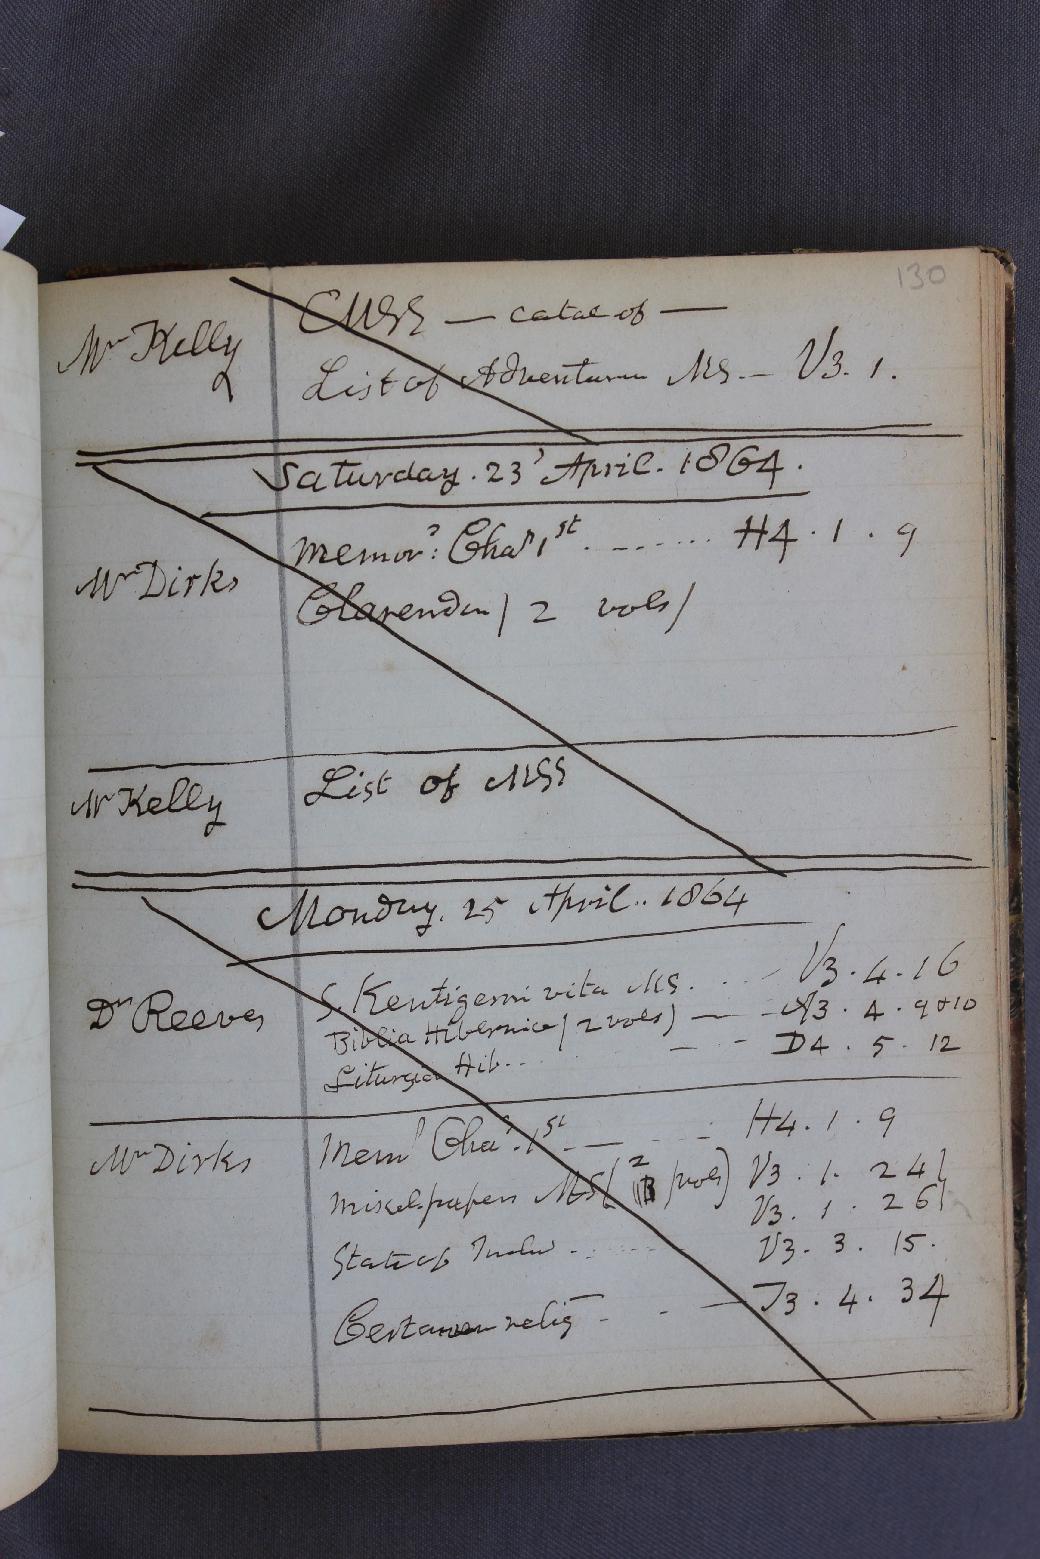 130
Mr Kelly
MSS — catal of —
List of Adventurers MS. — V3. 1.
Saturday. 23 April. 1864.
Mr Dirks
Memor: Chas 1st ........ H4 . 1 . 9
Clarendon / 2 vols /
Mr Kelly
List of MSS
Monday. 25 April. 1864
Dr Reeves
S. Kentigerni vita MS. ... V3 . 4 . 16
Biblia Hibernice / 2 vols) — A3 . 4 . 9 & 10
Liturgia Hib... D4 . 5 . 12
Mr Dirks
Mem Chas. 1st — H4 . 1 . 9
miscel. papers MS ( 2 vols) V3 . 1 . 24
V3 . 1 . 26
State of ... V3 . 3 . 15.
Certamen relig — J3 . 4 . 34